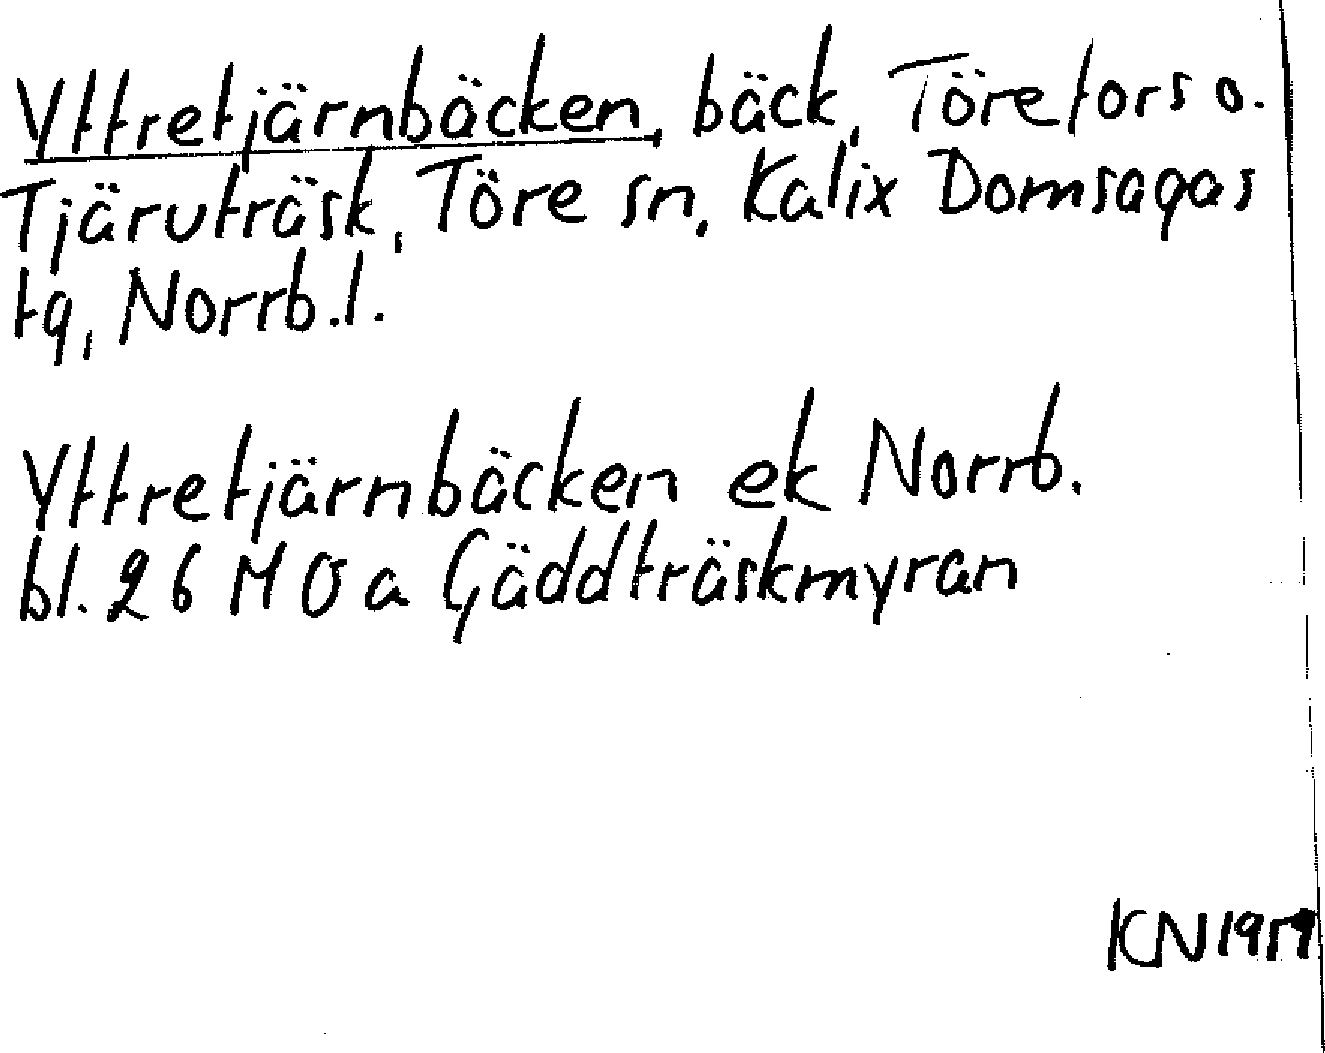 Yttretjärnbäcken, bäck, Törefors o.
Tjäruträsk, Töre sn, Kalix Domsagas
tg, Norrb.l.
Yttretjärnbäcken ek Norrb.
bl. 26 M Ö a Gäddträskmyran
KN 1959